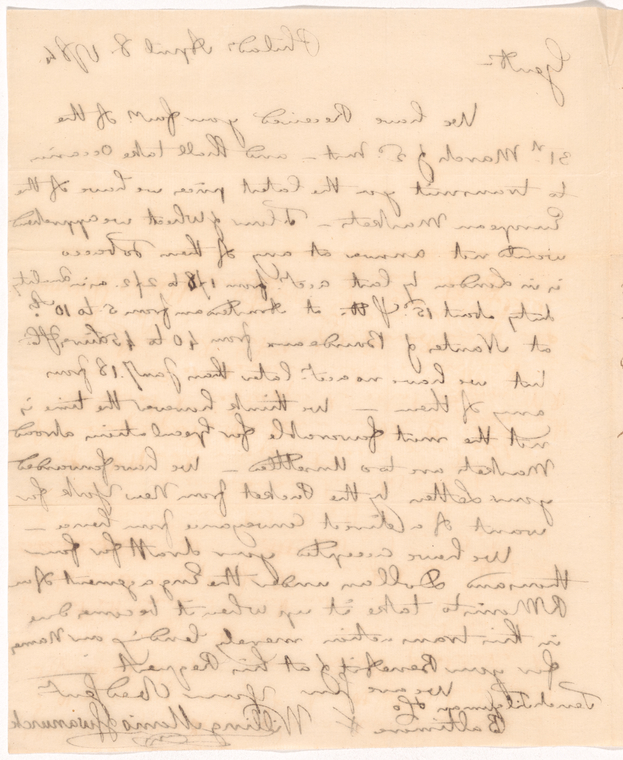 Gentn Philada April 8. 1784
We have Received your favr. of the
31st. March & 5th Inst - and shall take Occasion
to transmit you the latest prices we have of the
European Markets - Flour & Wheat we apprehend
would not answer at any of them Tobacco
is in London by last acct. from 1/8 to 2/2. as in Quality
duty about 15d. at Amsterdam from 5 to 10
at Nantes & Bourdeaux from 40 to 45
but we have no acct. later than Jany. 13 from
any of them - We think however the time is
not the most favorable for Speculation abroad
Markets are too Unsettled - We have forwarded
your Letter by the Packet from New York for
want of a direct Conveyance from hence -
We have accepted your draft for four
thousand Dollars under the Engagement of our
RMorris to take it up when it becomes due
in this transaction merely lending our Names
for your Benefit & at his Request
We are Your Obedt Servt
Tench Tilghman & Co
Baltimore Willing Morris & Swanwick